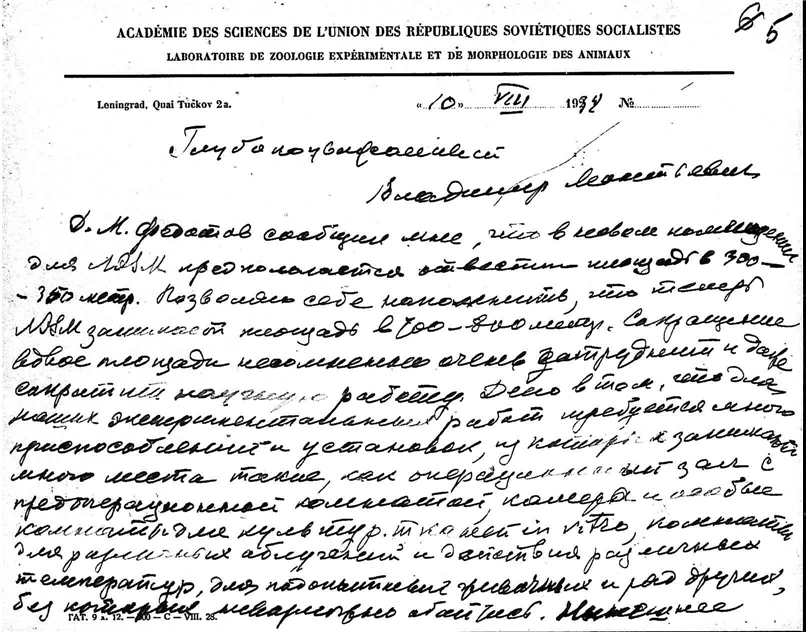 5
ACADÉMIE DES SCIENCES DE L'UNION DES RÉPUBLIQUES SOVIÉTIQUES SOCIALISTES
LABORATOIRE DE ZOOLOGIE EXPÉRIMENTALE ET DE MORPHOLOGIE DES ANIMAUX
Leningrad, Quai Tučkov 2a. „10" VIII 1934 №
Глубокоуважаемый
Владимир Леонтьевич
Д. М. Федотов сообщил мне, что в новом помещении
для предполагается отвести площадь в 300–
–350 метр. Позволяю себе напомнить, что теперь
занимает площадь в 700–800 метр. Сокращение
вдвое площади несомненно очень затруднит и даже
сократит научную работу. Дело в том, что для
наших экспериментальных работ требуется много
приспособлений и установок, из которых занимают
много места такие, как операционный зал с
предоперационной комнатой, камера и особые
комнаты для культур. тканей in vitro, комнаты
для различных облучений и действия различных
температур, для подопытных животных и ряд других,
без которых невозможно обойтись. Нынешнее
ГАТ. 9 x. 12. — 400 — C — VIII. 28.